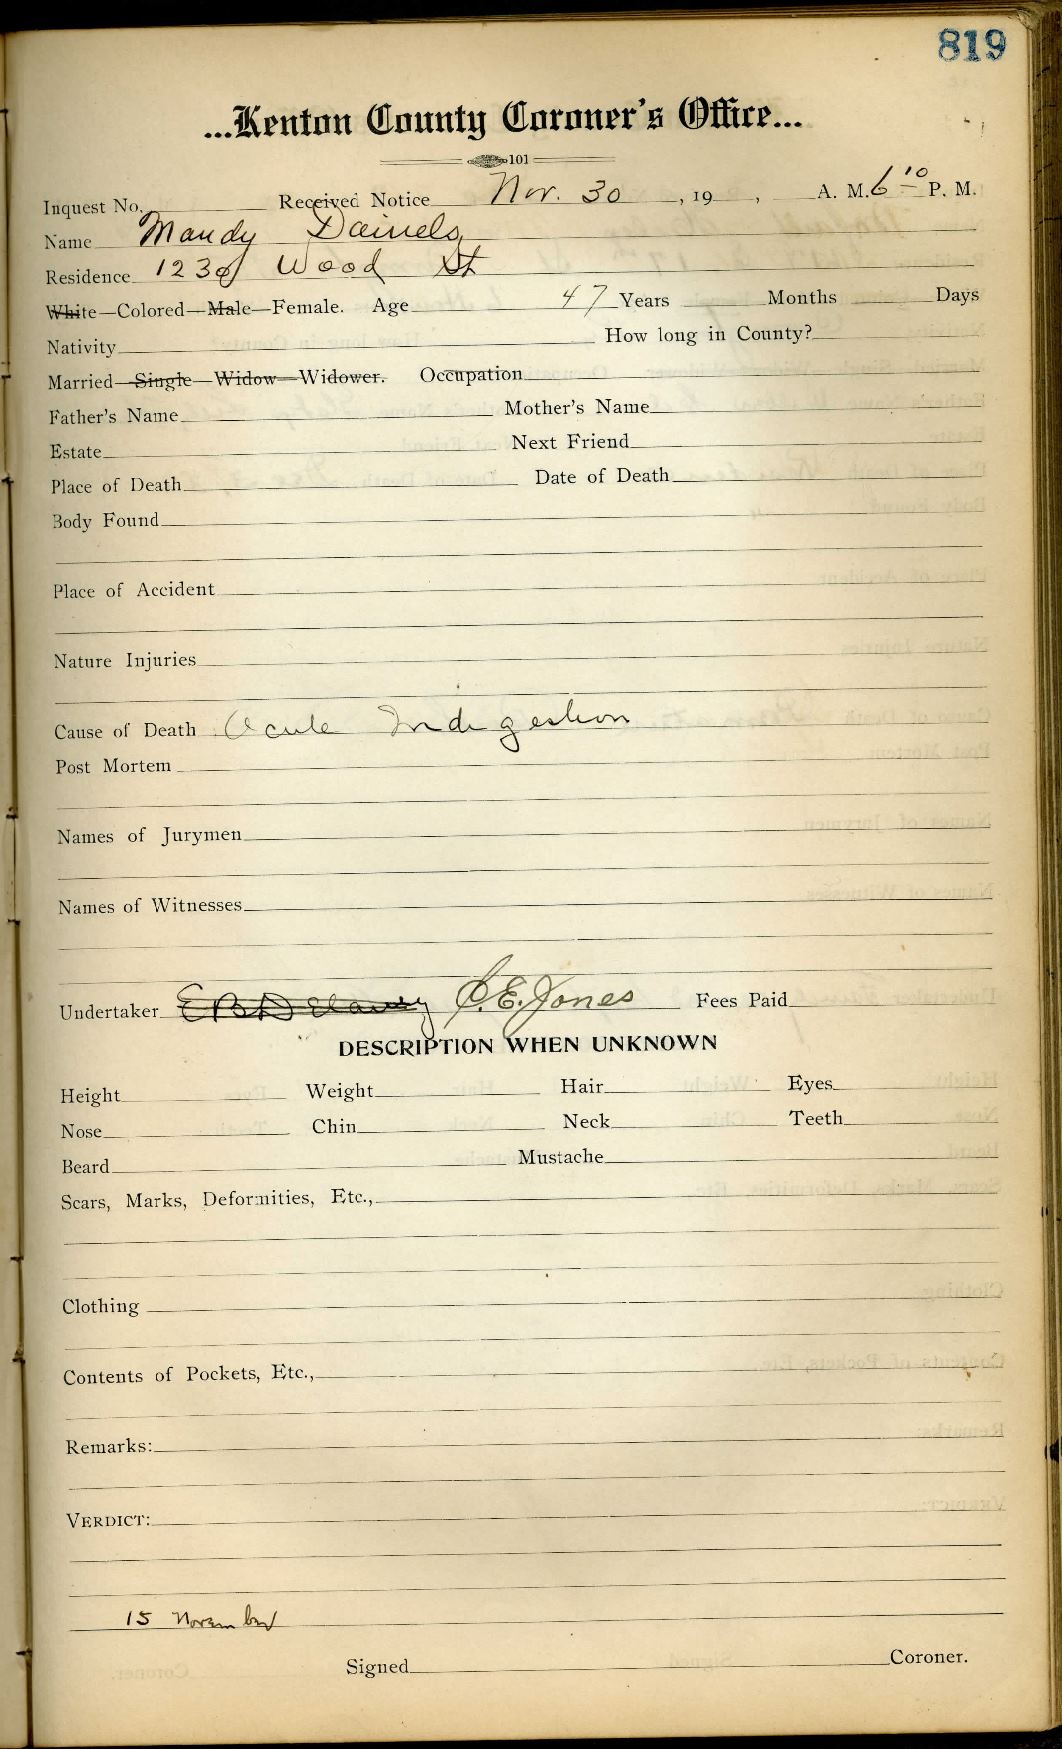 819
...Kenton County Coroner's Office...
101
Inquest No. Received Notice Nov. 30, 19 , A. M. 6 10 P. M.
Name Mandy Dainels
Residence 1230 Wood St
White—Colored—Male—Female. Age 47 Years Months Days
Nativity How long in County?
Married—Single—Widow—Widower. Occupation
Father's Name Mother's Name
Estate Next Friend
Place of Death Date of Death
Body Found
Place of Accident
Nature Injuries
Cause of Death Acute Indigestion
Post Mortem
Names of Jurymen
Names of Witnesses
Undertaker E B Delaney C.E. Jones Fees Paid
DESCRIPTION WHEN UNKNOWN
Height Weight Hair Eyes
Nose Chin Neck Teeth
Beard Mustache
Scars, Marks, Deformities, Etc.,
Clothing
Contents of Pockets, Etc.,
Remarks:
VERDICT:
15 November
Signed Coroner.